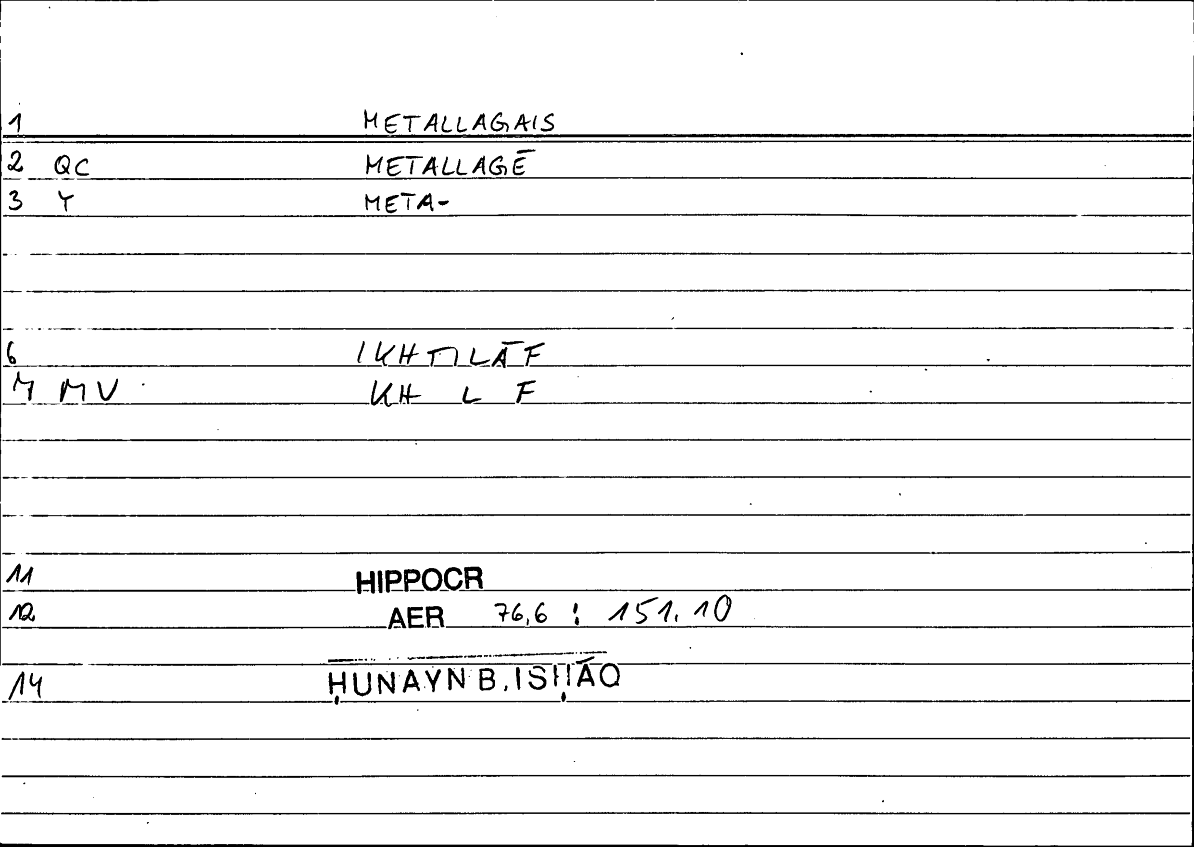 1 METALLAGAIS
2 QC METALLAGĒ
3 Y META-
6 IKHTILĀF
7 MV KH L F
11 HIPPOCR
12 AER 76,6 : 151.10
14 ḤUNAYN B. ISḤĀQ